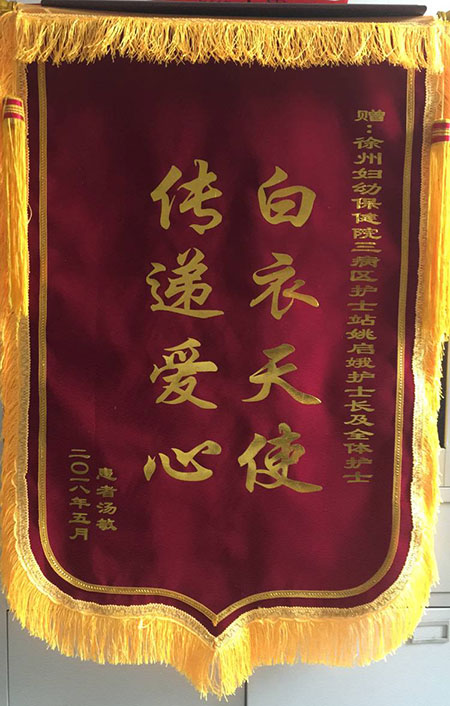 赠：徐州妇幼保健院三病区护士站姚启娥护士长及全体护士
白衣天使
传递爱心
患者汤敏
二〇一八年五月